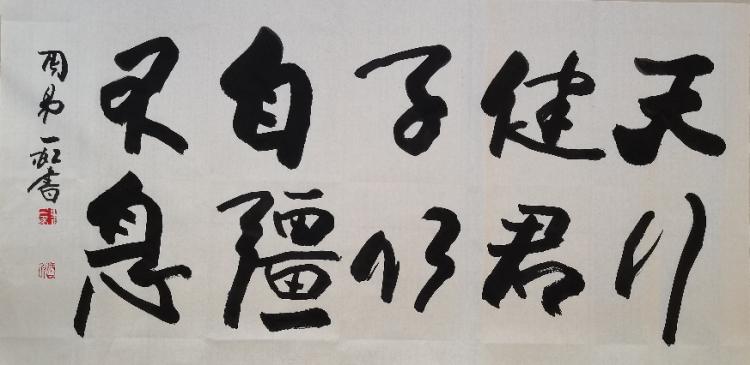 天行
健君
子以
自彊
不息
周易一 書